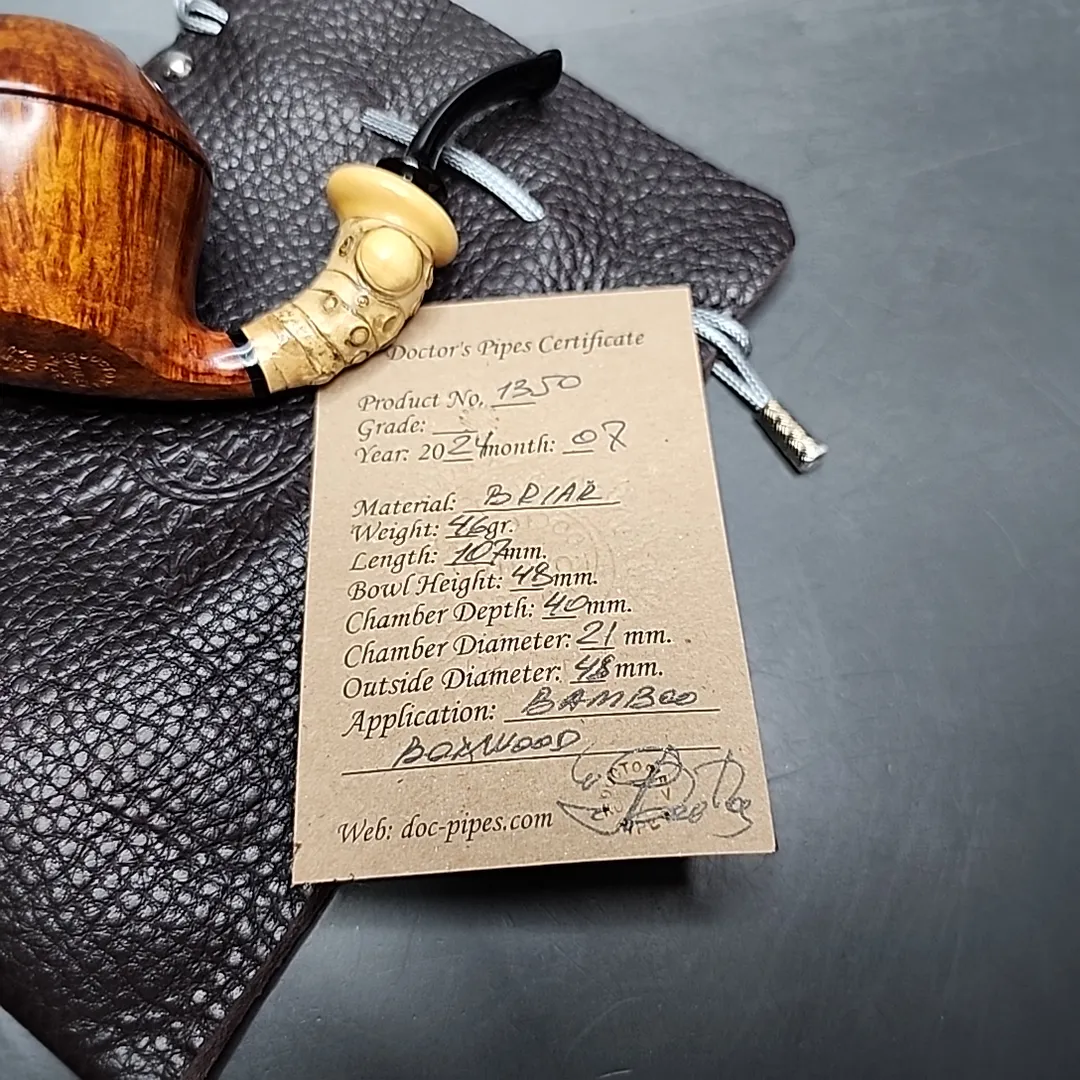 Doctor's Pipes Certificate
Product No. 1350
Grade:
Year: 2024 month: 07
Material: BRIAR
Weight: 46gr.
Length: 107mm.
Bowl Height: 48mm.
Chamber Depth: 40mm.
Chamber Diameter: 21 mm.
Outside Diameter: 48mm.
Application: BAMBOO
BOXWOOD
Web: doc-pipes.com